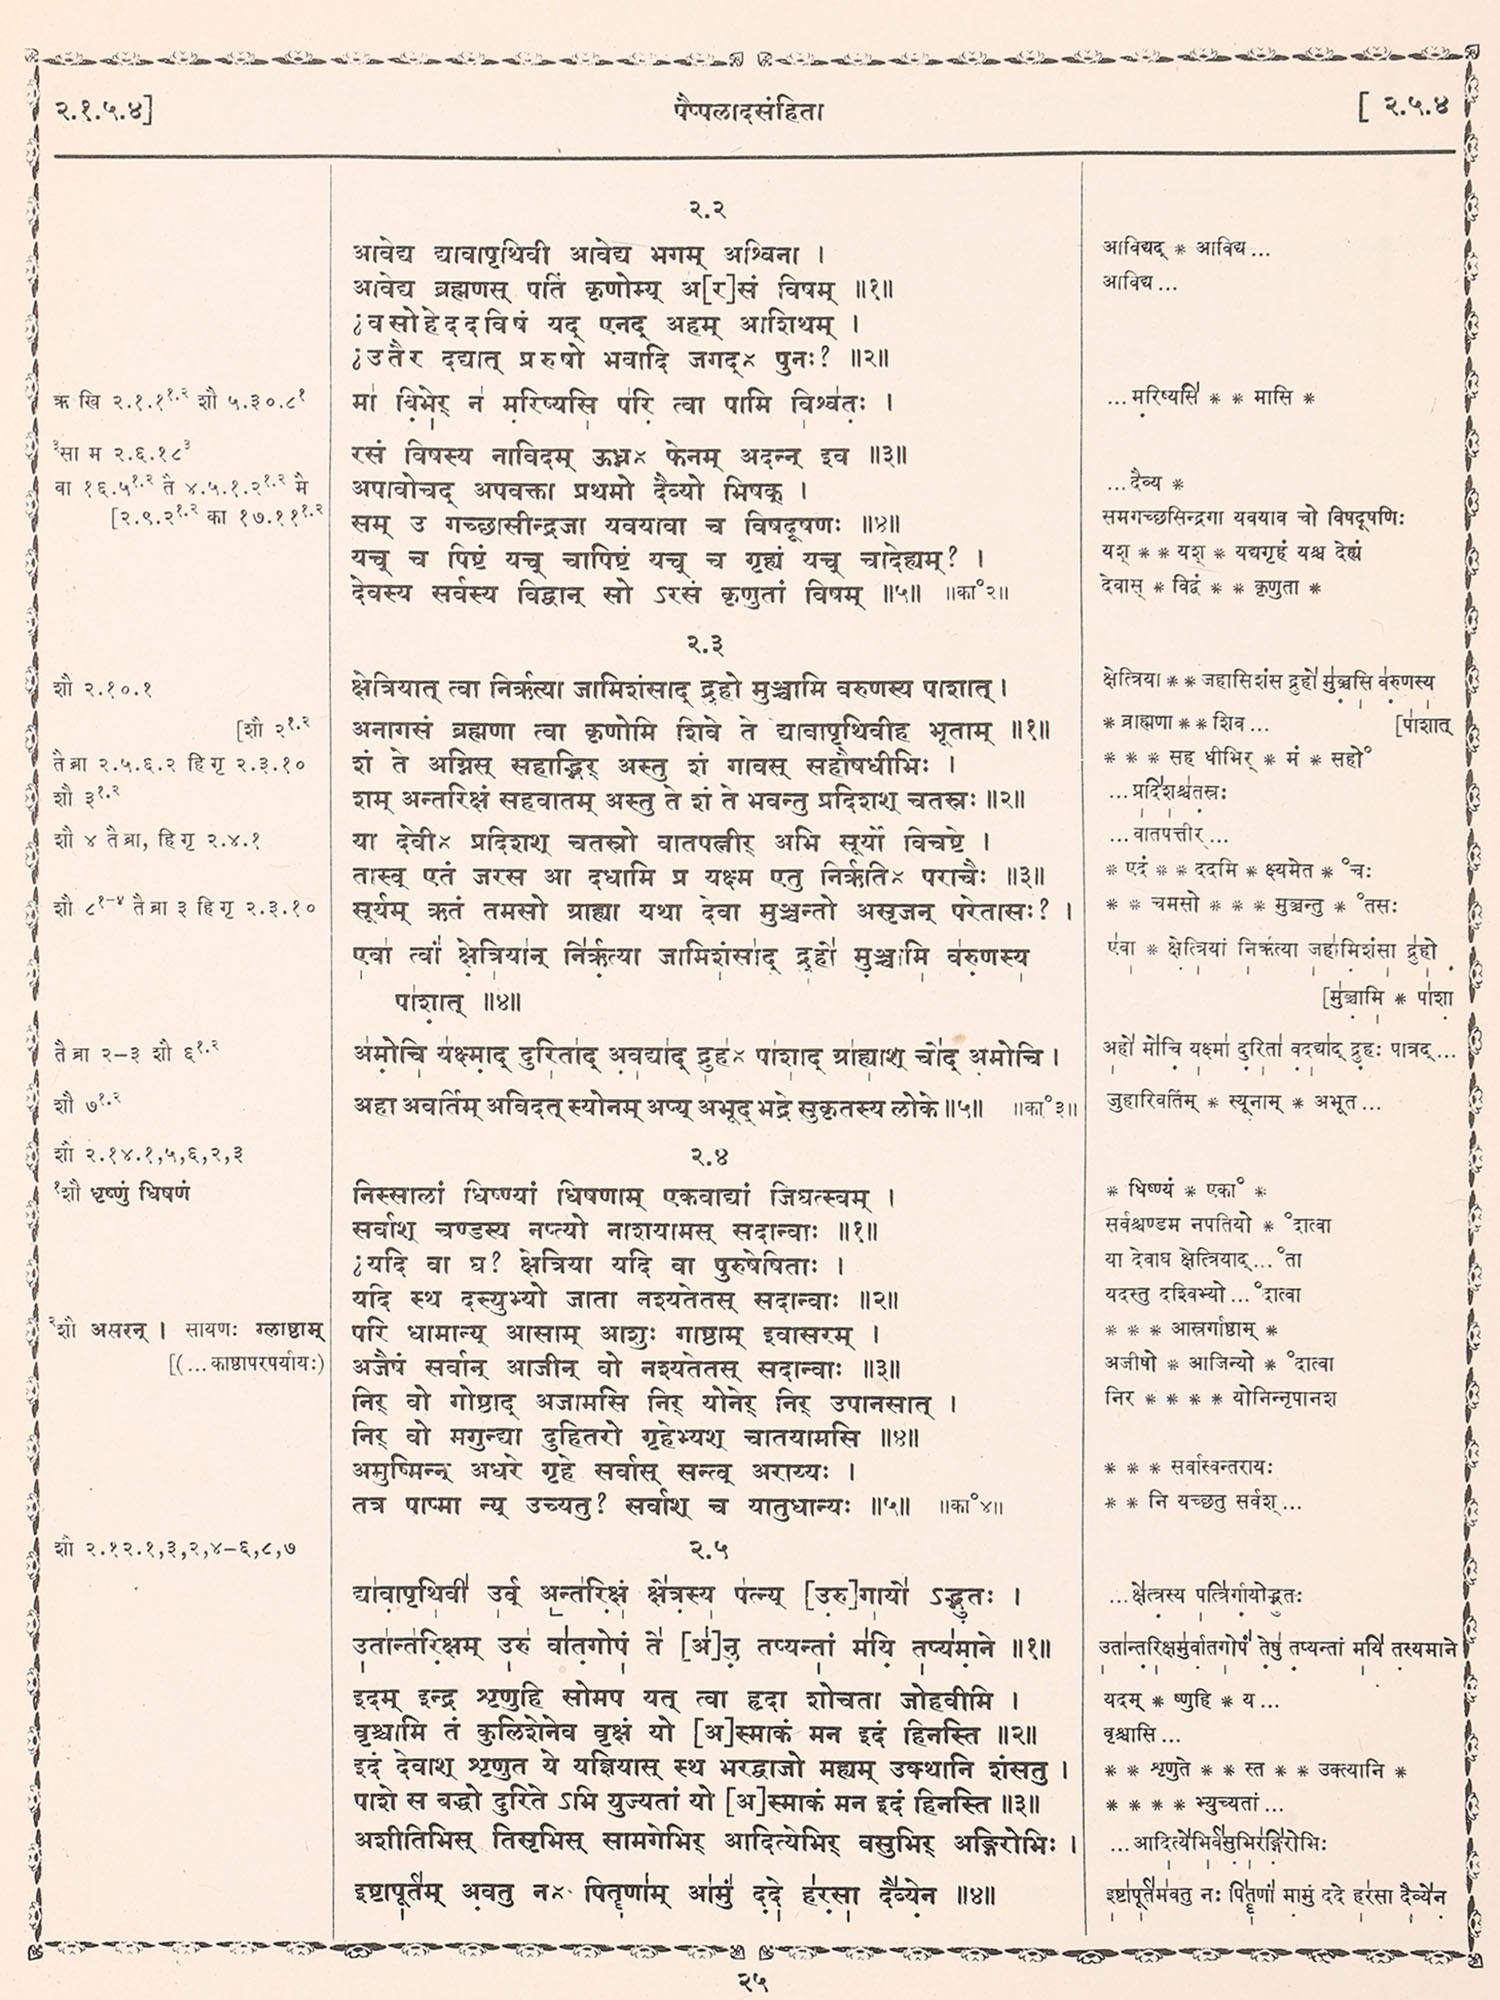 २.१.५.४]
पैप्पलादसंहिता
[ २.५.४
२.२
आवेद्य द्यावापृथिवी आवेद्य भगम् अश्विना ।
आविद्यद् * आविद्य ...
आवेद्य ब्रह्मणस् पतिं कृणोम्य् अ[र]सं विषम् ॥१॥
आविद्य ...
¿वसोहेददविषं यद् एनद् अहम् आशिथम् ।
¿उतैर दद्यात् प्ररुषो भवादि जगद्× पुनः? ॥२॥
ऋ खि २.१.११.२ शौ ५.३०.८१
मा बिभेर् न मरिष्यसि परि त्वा पामि विश्वतः ।
... मरिष्यसि * * मासि *
३सा म २.६.१८३
रसं विषस्य नाविदम् ऊध्न× फेनम् अदन्न् इव ॥३॥
वा १६.५१.२ तै ४.५.१.२१.२ मै
अपावोचद् अपवक्ता प्रथमो दैव्यो भिषक् ।
... दैव्य *
[२.९.२१.२ का १७.१११.२
सम् उ गच्छासीन्द्रजा यवयावा च विषदूषणः ॥४॥
समगच्छसिन्द्रगा यवयाव चो विषदूषणिः
यच् च पिष्टं यच् चापिष्टं यच् च गृह्यं यच् चादेह्यम्? ।
यश् * * यश् * यद्यगृहं यश्च देह्यं
देवस्य सर्वस्य विद्वान् सो ऽरसं कृणुतां विषम् ॥५॥ ॥का॰२॥
देवास् * विद्वं * * कृणुता *
२.३
शौ २.१०.१
क्षेत्रियात् त्वा निर्ऋत्या जामिशंसाद् द्रुहो मुञ्चामि वरुणस्य पाशात् ।
क्षेत्रिया * * जहासिशंस द्रुहो मुञ्चसि वरुणस्य
[शौ २१.२
अनागसं ब्रह्मणा त्वा कृणोमि शिवे ते द्यावापृथिवीह भूताम् ॥१॥
* ब्राह्मणा * * शिव ... [पाशात्
तै ब्रा २.५.६.२ हि गृ २.३.१०
शं ते अग्निस् सहाद्भिर् अस्तु शं गावस् सहौषधीभिः ।
* * * सह धीभिर् * मं * सहो॰
शौ ३१.२
शम् अन्तरिक्षं सहवातम् अस्तु ते शं ते भवन्तु प्रदिशश् चतस्रः ॥२॥
... प्रदिशश्चतस्रः
शौ ४ तै ब्रा, हि गृ २.४.१
या देवी× प्रदिशश् चतस्रो वातपत्नीर् अभि सूर्यो विचष्टे ।
... वातपत्तीर् ...
तास्व् एतं जरस आ दधामि प्र यक्ष्म एतु निर्ऋति× पराचैः ॥३॥
* एदं * * ददमि * क्ष्यमेत * ॰चः
शौ ८१-४ तै ब्रा ३ हि गृ २.३.१०
सूर्यम् ऋतं तमसो ग्राह्या यथा देवा मुञ्चन्तो असृजन् परेतासः? ।
* * चमसो * * * मुञ्चन्तु * ॰तसः
एवा त्वां क्षेत्रियान् निर्ऋत्या जामिशंसाद् द्रुहो मुञ्चामि वरुणस्य
एवा * क्षेत्रियां निर्ऋत्या जहामिशंसा द्रुहो
पाशात् ॥४॥
[मुञ्चामि * पाशा
तै ब्रा २-३ शौ ६१.२
अमोचि यक्ष्माद् दुरिताद् अवद्याद् द्रुह× पाशाद् ग्राह्याश् चोद् अमोचि ।
अहो मोचि यक्ष्मा दुरिता वदद्याद् द्रुहः पात्रद् ...
शौ ७१.२
अहा अवर्तिम् अविदत् स्योनम् अप्य् अभूद् भद्रे सुकृतस्य लोके ॥५॥ ॥का॰३॥
जुहारिवर्तिम् * स्यूनाम् * अभूत ...
शौ २.१४.१,५,६,२,३
२.४
१शौ धृष्णुं धिषणं
निस्सालां धिष्ण्यां धिषणाम् एकवाद्यां जिघत्स्वम् ।
* धिष्ण्यं * एका॰ *
सर्वाश् चण्डस्य नप्त्यो नाशयामस् सदान्वाः ॥१॥
सर्वश्चण्डम नपतियो * ॰दात्वा
¿यदि वा घ? क्षेत्रिया यदि वा पुरुषेषिताः ।
या देवाघ क्षेत्रियाद् ... ॰ता
यदि स्थ दस्युभ्यो जाता नश्यतेतस् सदान्वाः ॥२॥
यदस्तु दश्विभ्यो ... ॰दात्वा
२शौ असरन् । सायणः ग्लाष्ठाम्
परि धामान्य् आसाम् आशुः गाष्ठाम् इवासरम् ।
* * * आस्रर्गाष्ठाम् *
[(... काष्ठापरपर्यायः)
अजैषं सर्वान् आजीन् वो नश्यतेतस् सदान्वाः ॥३॥
अजीषो * आजिन्यो * ॰दात्वा
निर् वो गोष्ठाद् अजामसि निर् योनेर् निर् उपानसात् ।
निर * * * * योनिन्नृपानश
निर् वो मगुन्द्या दुहितरो गृहेभ्यश् चातयामसि ॥४॥
अमुष्मिन्न् अधरे गृहे सर्वास् सन्त्व् अराय्यः ।
* * * सर्वास्वन्तरायः
तत्र पाप्मा न्य् उच्यतु? सर्वाश् च यातुधान्यः ॥५॥ ॥का॰४॥
* * नि यच्छतु सर्वश् ...
शौ २.१२.१,३,२,४-६,८,७
२.५
द्यावापृथिवी उर्व् अन्तरिक्षं क्षेत्रस्य पत्न्य् [उरु]गायो ऽद्भुतः ।
... क्षेत्रस्य पत्निर्गायोद्भुतः
उतान्तरिक्षम् उरु वातगोपं ते [अ]नु तप्यन्तां मयि तप्यमाने ॥१॥
उतान्तरिक्षमुर्वातगोपं तेषु तप्यन्तां मयि तस्यमाने
इदम् इन्द्र शृणुहि सोमप यत् त्वा हृदा शोचता जोहवीमि ।
यदम् * ष्णुहि * य ...
वृश्चामि तं कुलिशेनेव वृक्षं यो [अ]स्माकं मन इदं हिनस्ति ॥२॥
वृश्चासि ...
इदं देवाश् शृणुत ये यज्ञियास् स्थ भरद्वाजो मह्यम् उक्थानि शंसतु ।
* * शृणुते * * स्त * * उक्त्यानि *
पाशे स बद्धो दुरिते ऽभि युज्यतां यो [अ]स्माकं मन इदं हिनस्ति ॥३॥
* * * * भ्युच्यतां ...
अशीतिभिस् तिसृभिस् सामगेभिर् आदित्येभिर् वसुभिर् अङ्गिरोभिः ।
... आदित्येभिर्वसुभिरङ्गिरोभिः
इष्टापूर्तम् अवतु न× पितॄणाम् आमुं ददे हरसा दैव्येन ॥४॥
इष्टापूर्तमवतु नः पितॄणां मामुं ददे हरसा दैव्येन
२५